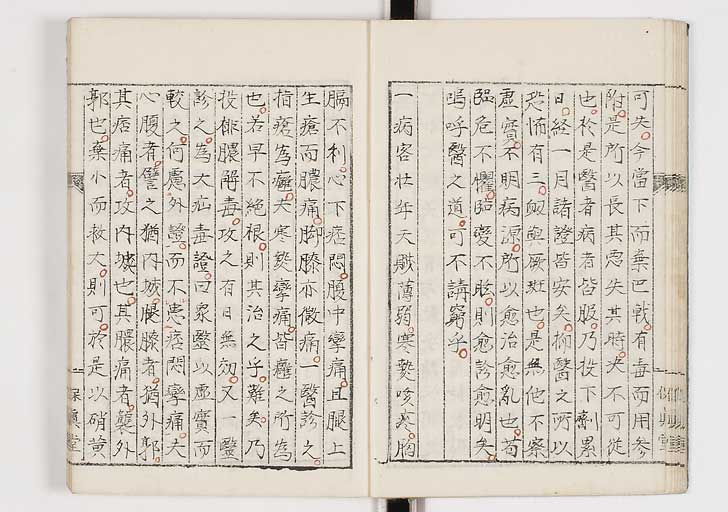 可失今當下而棄巴戟有毒而用參
附是所以長其惡失其時夫不可從
也於是醫者病者皆服乃投下劑累
日經一月諸證皆安矣抑醫之所以
恐怖有三曰與厥逆也是無他不察
虛實不明病源所以愈治愈亂也苟
臨危不懼臨變不駭則愈診愈明矣
嗚呼醫之道可不講窮乎
一病客壯年天賦薄弱寒熱咳嗽胸
膈不利心下痞悶腹中攣痛且腿上
生瘡而膿痛脚膝亦微痛一醫診之
指瘡為癰夫寒熱攣痛皆癰之所為
也若早不絕根則其治之乎難矣乃
投排膿解毒攻之有日無効又一醫
診之為大疝毒證曰眾醫以虛實而
較之何慮外證而不患痞悶攣痛夫
心腹者譬之猶內城腿膝者猶外郭
其痞痛者攻內城也其腿痛者襲外
郭也棄小而救大則可於是以硝黃
保真堂